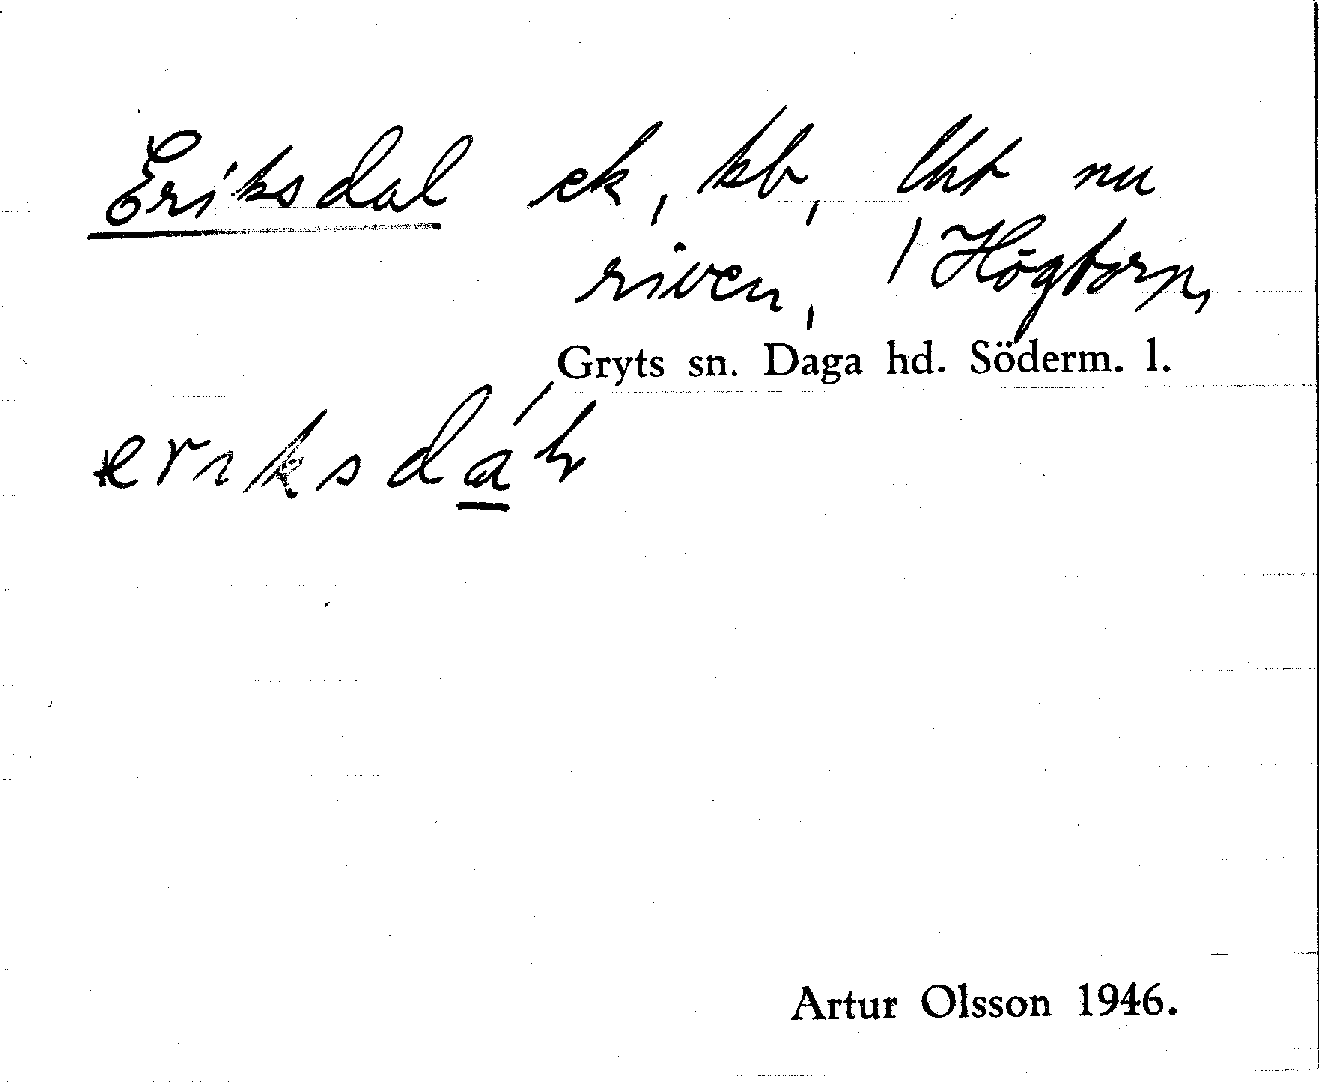 Eriksdal ek, kb, lht nu
riven, / Högtorp,
Gryts sn. Daga hd. Söderm. l.
eriksdáł
Artur Olsson 1946.